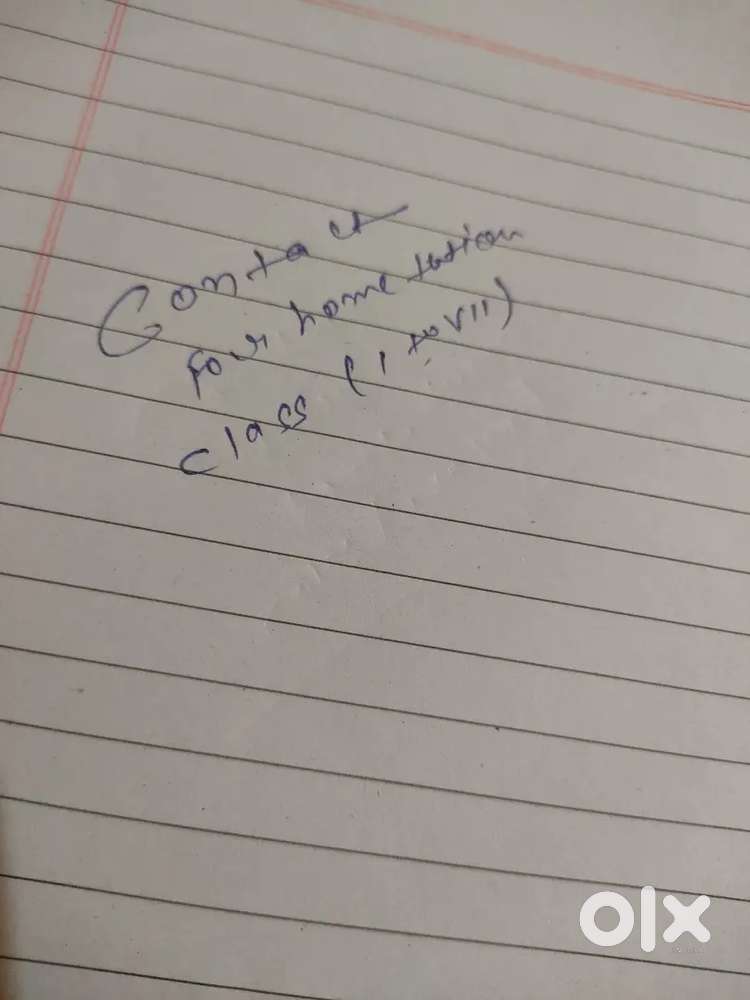 Contact
for home tution
class (I to VII)
olx